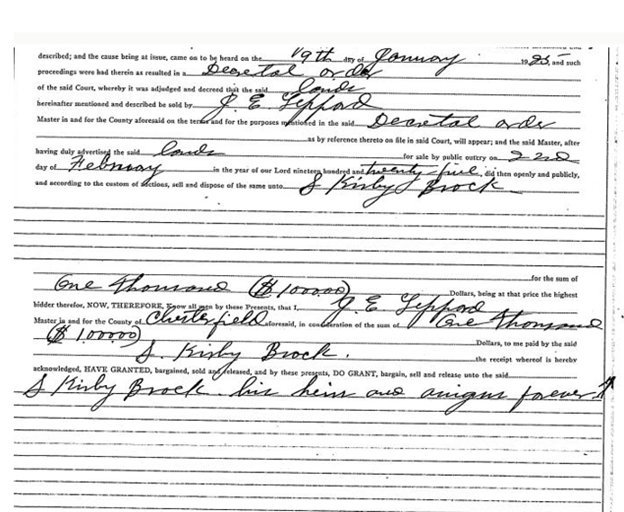 described; and the cause being at issue, came on to be heard on the 19th day of January 1925, and such
proceedings were had therein as resulted in a Decretal order
of the said Court, whereby it was adjudged and decreed that the said lands
hereinafter mentioned and described be sold by J. E. Leppard
Master in and for the County aforesaid on the terms and for the purposes mentioned in the said Decretal order
as by reference thereto on file in said Court, will appear; and the said Master, after
having duly advertised the said lands for sale by public outcry on 2nd
day of February in the year of our Lord nineteen hundred and twenty-five, did then openly and publicly,
and according to the custom of auctions, sell and dispose of the same unto S Kirby Brock
for the sum of
One thousand ($1000.00) Dollars, being at that price the highest
bidder therefor, NOW, THEREFORE, Know all men by these Presents, that I, J. E. Leppard
Master in and for the County of Chesterfield aforesaid, in consideration of the sum of One thousand
($1000.00) Dollars, to me paid by the said
S. Kirby Brock. the receipt whereof is hereby
acknowledged, HAVE GRANTED, bargained, sold and released, and by these presents, DO GRANT, bargain, sell and release unto the said
S Kirby Brock his heirs and assigns forever.